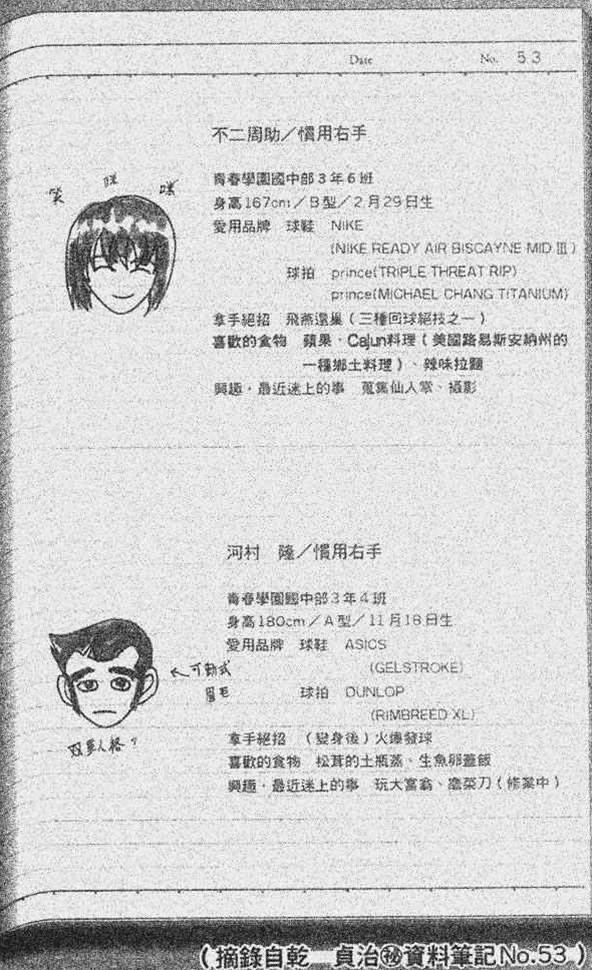 Date No. 53
不二周助／慣用右手
笑 咪 咪
青春學園國中部3年6班
身高167cm／B型／2月29日生
愛用品牌 球鞋 NIKE
(NIKE READY AIR BISCAYNE MID Ⅲ)
球拍 prince(TRIPLE THREAT RIP)
prince(MICHAEL CHANG TITANIUM)
拿手絕招 飛燕還巢（三種回球絕技之一）
喜歡的食物 蘋果．Cajun料理（美國路易斯安納州的
一種鄉土料理）、辣味拉麵
興趣．最近迷上的事 蒐集仙人掌、攝影
河村 隆／慣用右手
青春學園國中部3年4班
身高180cm／A型／11月18日生
愛用品牌 球鞋 ASICS
(GELSTROKE)
球拍 DUNLOP
(RIMBREED XL)
拿手絕招 （變身後）火爆發球
喜歡的食物 松茸的土瓶蒸、生魚卵蓋飯
興趣．最近迷上的事 玩大富翁、磨菜刀（修業中）
←可動式
眉毛
双重人格？
（摘錄自乾 貞治㊙資料筆記No.53）